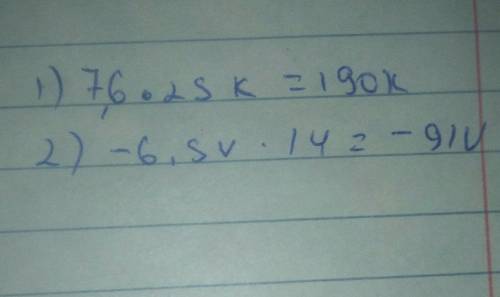 1) 7,6 . 25 k = 190k
2) -6,5v . 14 = -91v